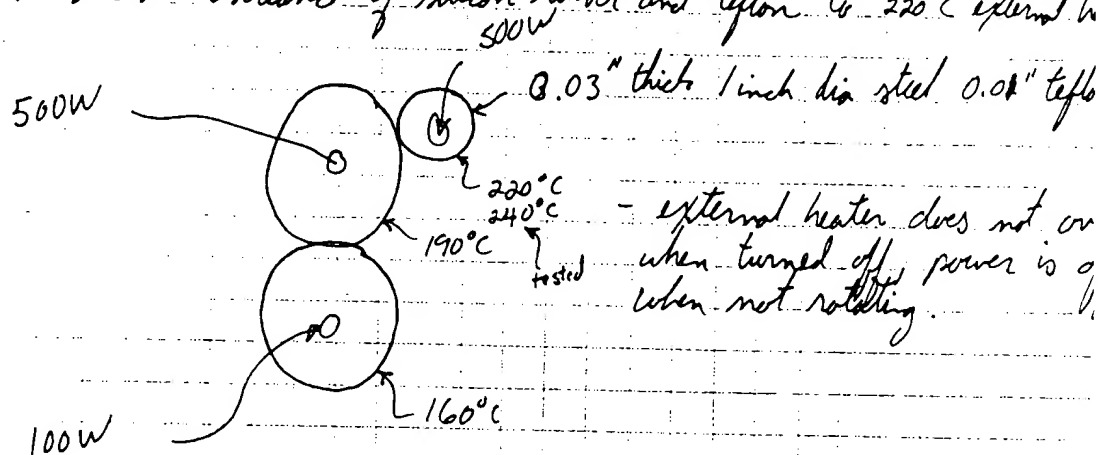 of silicon rubber and teflon to 220°C external
500W
500W
0.03" thick 1 inch dia steel 0.01" teflo
220°C
240°C
tested
190°C
- external heater does not ov
when turned off, power is
when not rotating.
160°C
100W